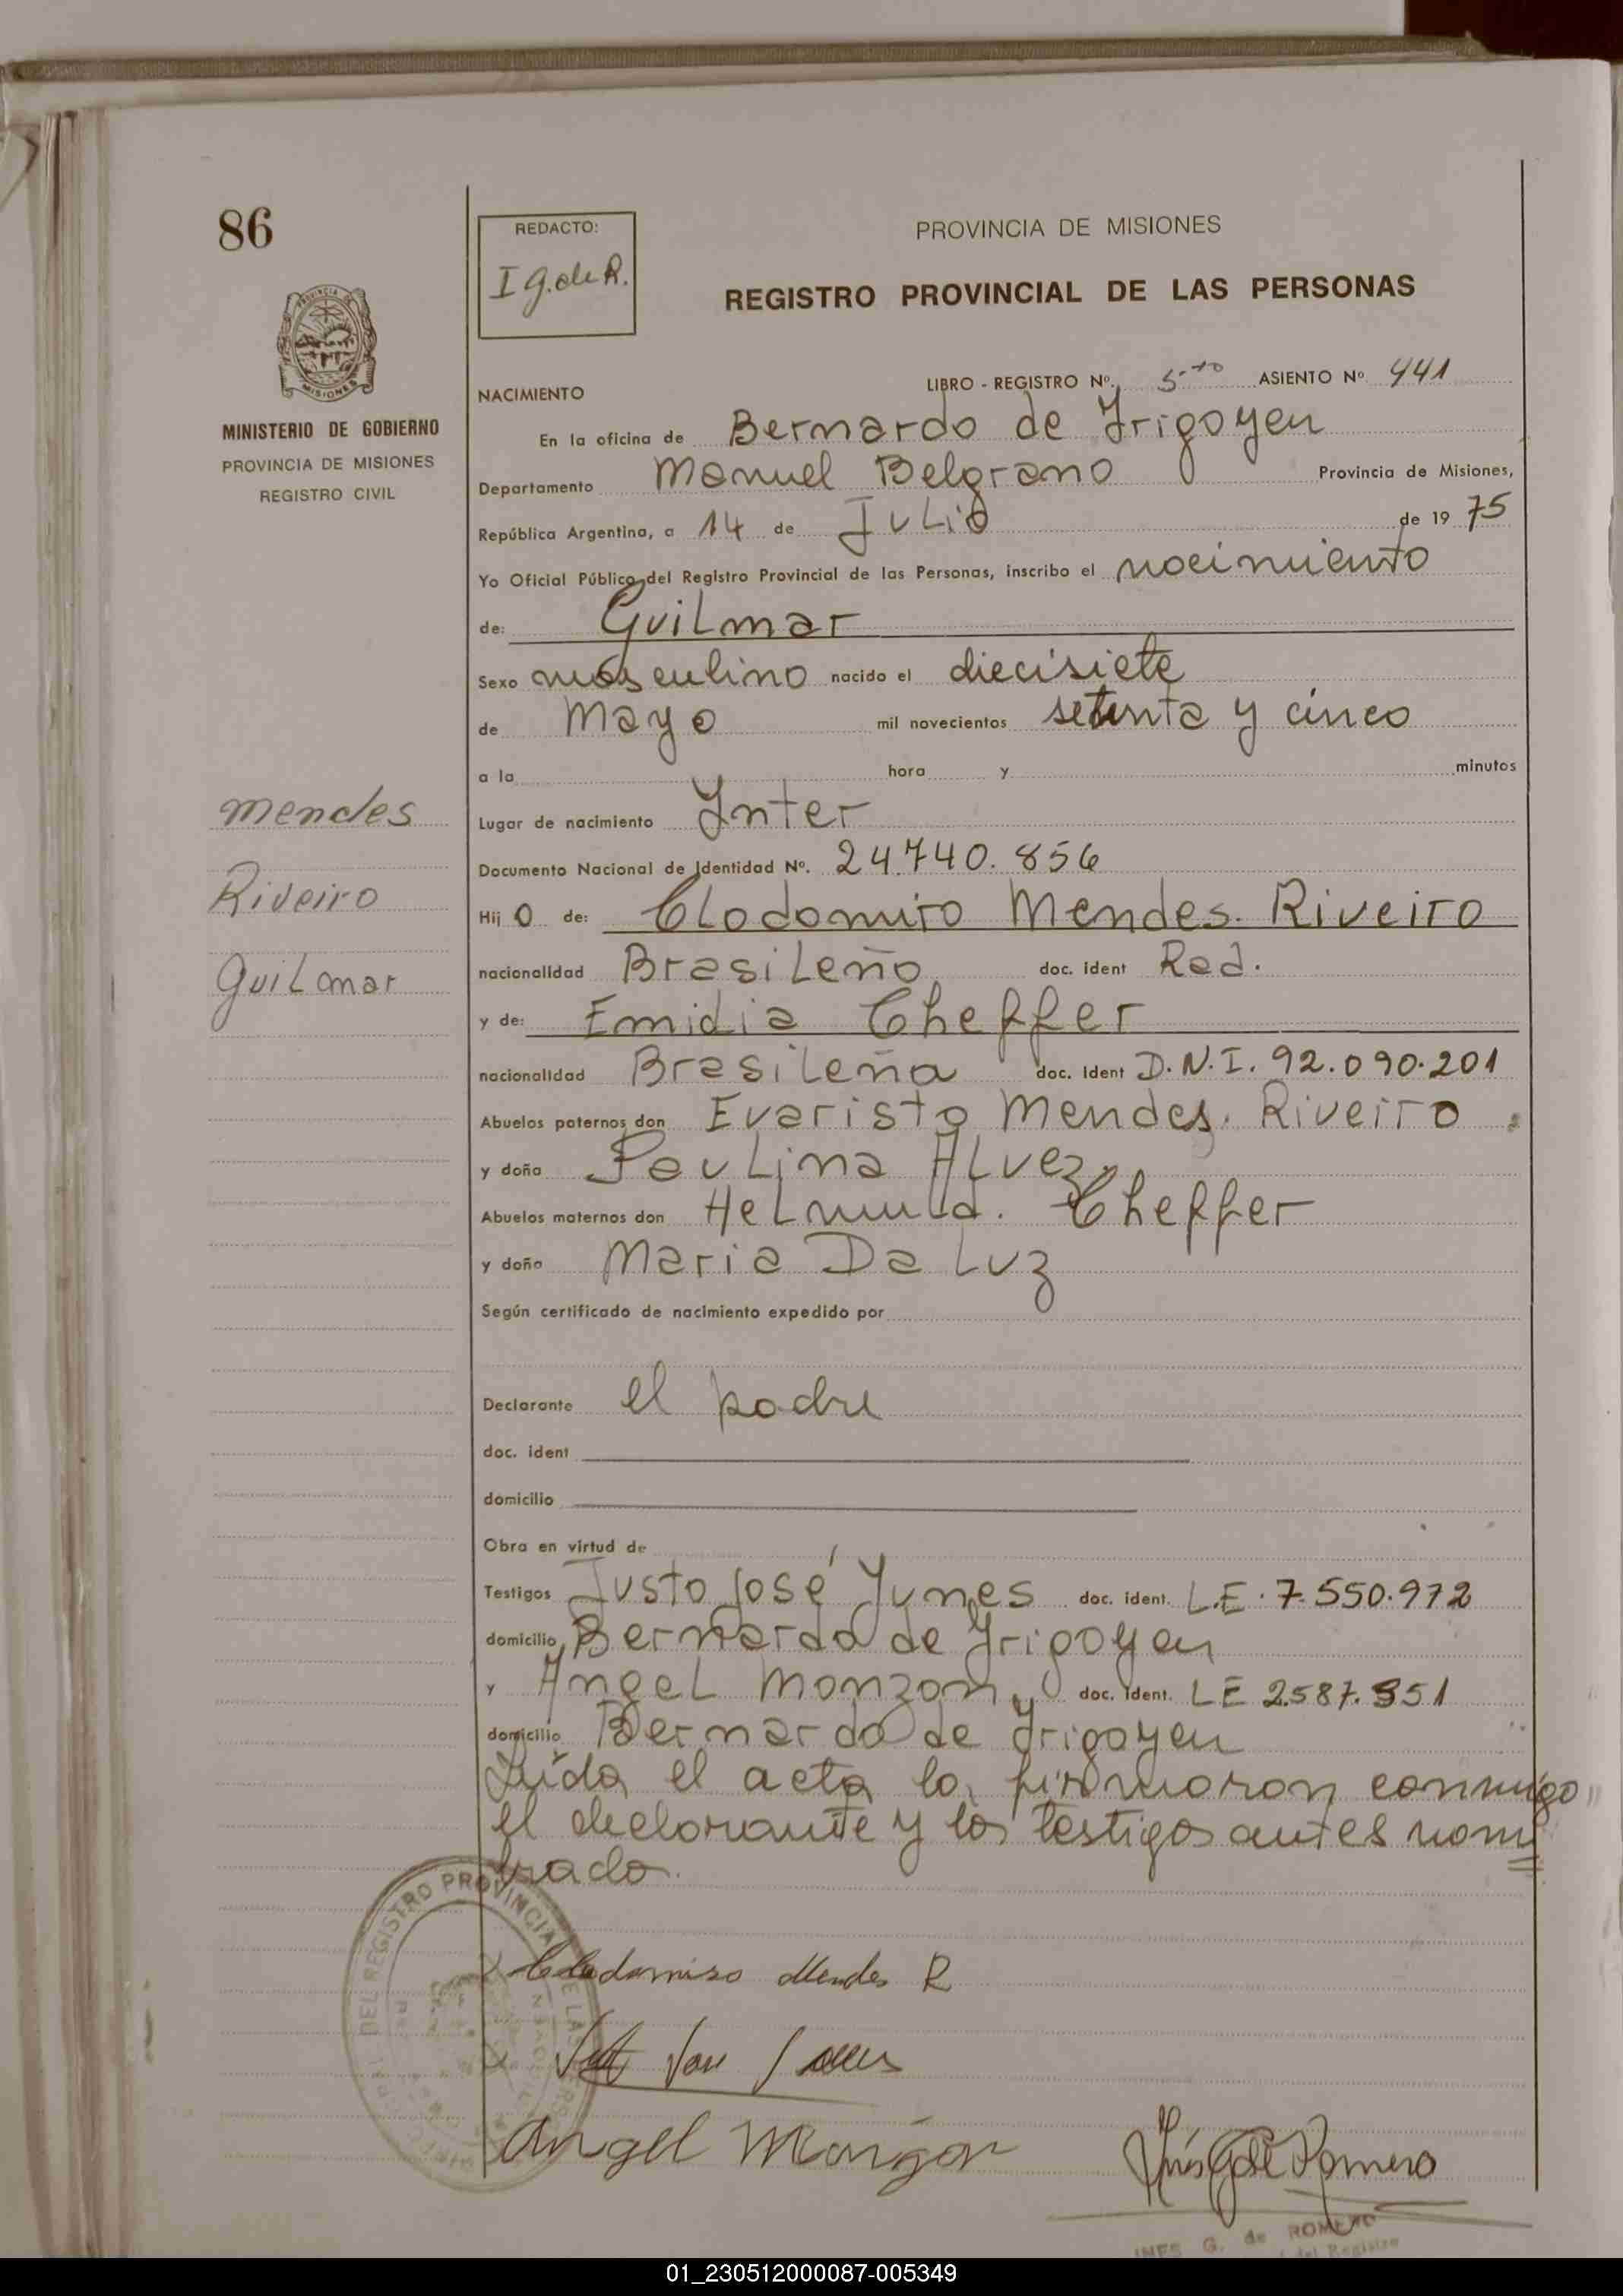 86
REDACTO:
I g. de R.
PROVINCIA DE MISIONES
REGISTRO PROVINCIAL DE LAS PERSONAS
MINISTERIO DE GOBIERNO
PROVINCIA DE MISIONES
REGISTRO CIVIL
NACIMIENTO
LIBRO - REGISTRO Nº. 5to ASIENTO Nº 441
En la oficina de Bernardo de Yrigoyen
Departamento Manuel Belgrano Provincia de Misiones,
República Argentina, a 14 de Julio de 19 75
Yo Oficial Público del Registro Provincial de las Personas, inscribo el nacimiento
de: Guilmar
Sexo masculino nacido el diecisiete
de Mayo mil novecientos setenta y cinco
a la hora y minutos
Lugar de nacimiento Ynter
Documento Nacional de Identidad Nº. 24.740.856
Hij o de: Clodomiro Mendes. Riveiro
nacionalidad Brasileño doc. ident Rad.
y de: Emidia Cheffer
nacionalidad Brasileña doc. ident D.N.I. 92.090.201
Abuelos paternos don Evaristo Mendes. Riveiro
y doña Paulina Alvez.
Abuelos maternos don Helmuld. Cheffer
y doña Maria Da Luz
Según certificado de nacimiento expedido por
Declarante el padre
doc. ident
domicilio
Obra en virtud de
Testigos Justo José Yunes doc. ident. L.E. 7.550.972
domicilio Bernardo de Yrigoyen
y Angel Monzon, doc. ident. LE 2.587.351
domicilio Bernardo de Yrigoyen
Leída el acta la firmaron conmigo
el declarante y los testigos antes nom
brado.
Mendes
Riveiro
Guilmar
Clodomiro Mendes R
Angel Monzon
Inés G de Romero
INES G. de ROMERO
del Registro
DEL REGISTRO PROVINCIAL DE LAS
01_230512000087-005349